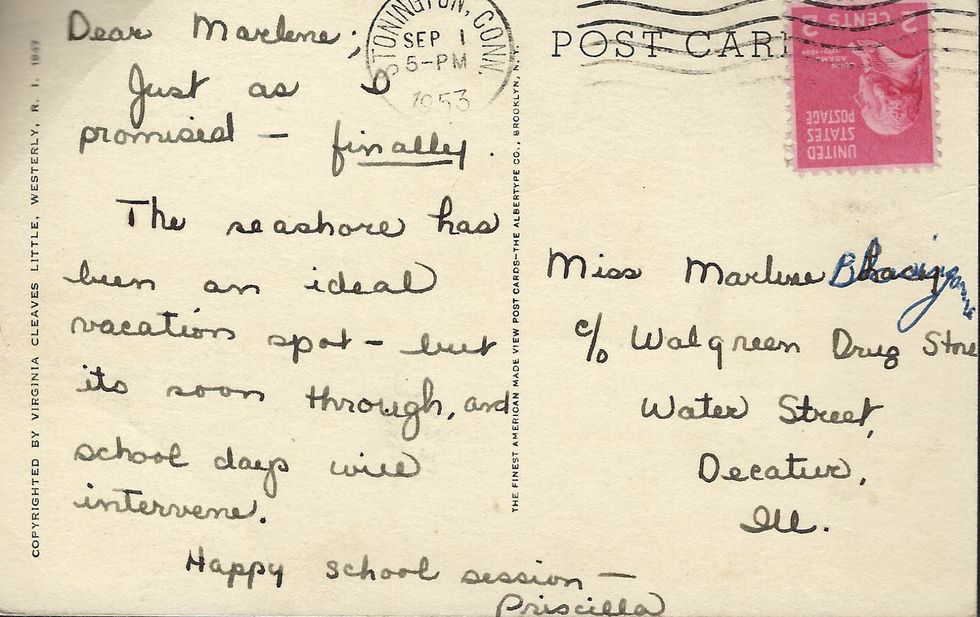 Dear Marlene;
Just as I
promised - finally.
The seashore has
been an ideal
vacation spot - but
its soon through, and
school days will
intervene.
Happy school session -
Priscilla
STONINGTON, CONN.
SEP 1
5-PM
1953
POST CARD
2 CENTS 2
ADAMS
UNITED
STATES
POSTAGE
Miss Marlene
c/o Walgreen Drug Store
Water Street,
Decatur,
Ill.
COPYRIGHTED BY VIRGINIA CLEAVES LITTLE, WESTERLY, R. I. 1947
THE FINEST AMERICAN MADE VIEW POST CARDS-THE ALBERTYPE CO., BROOKLYN, N.Y.